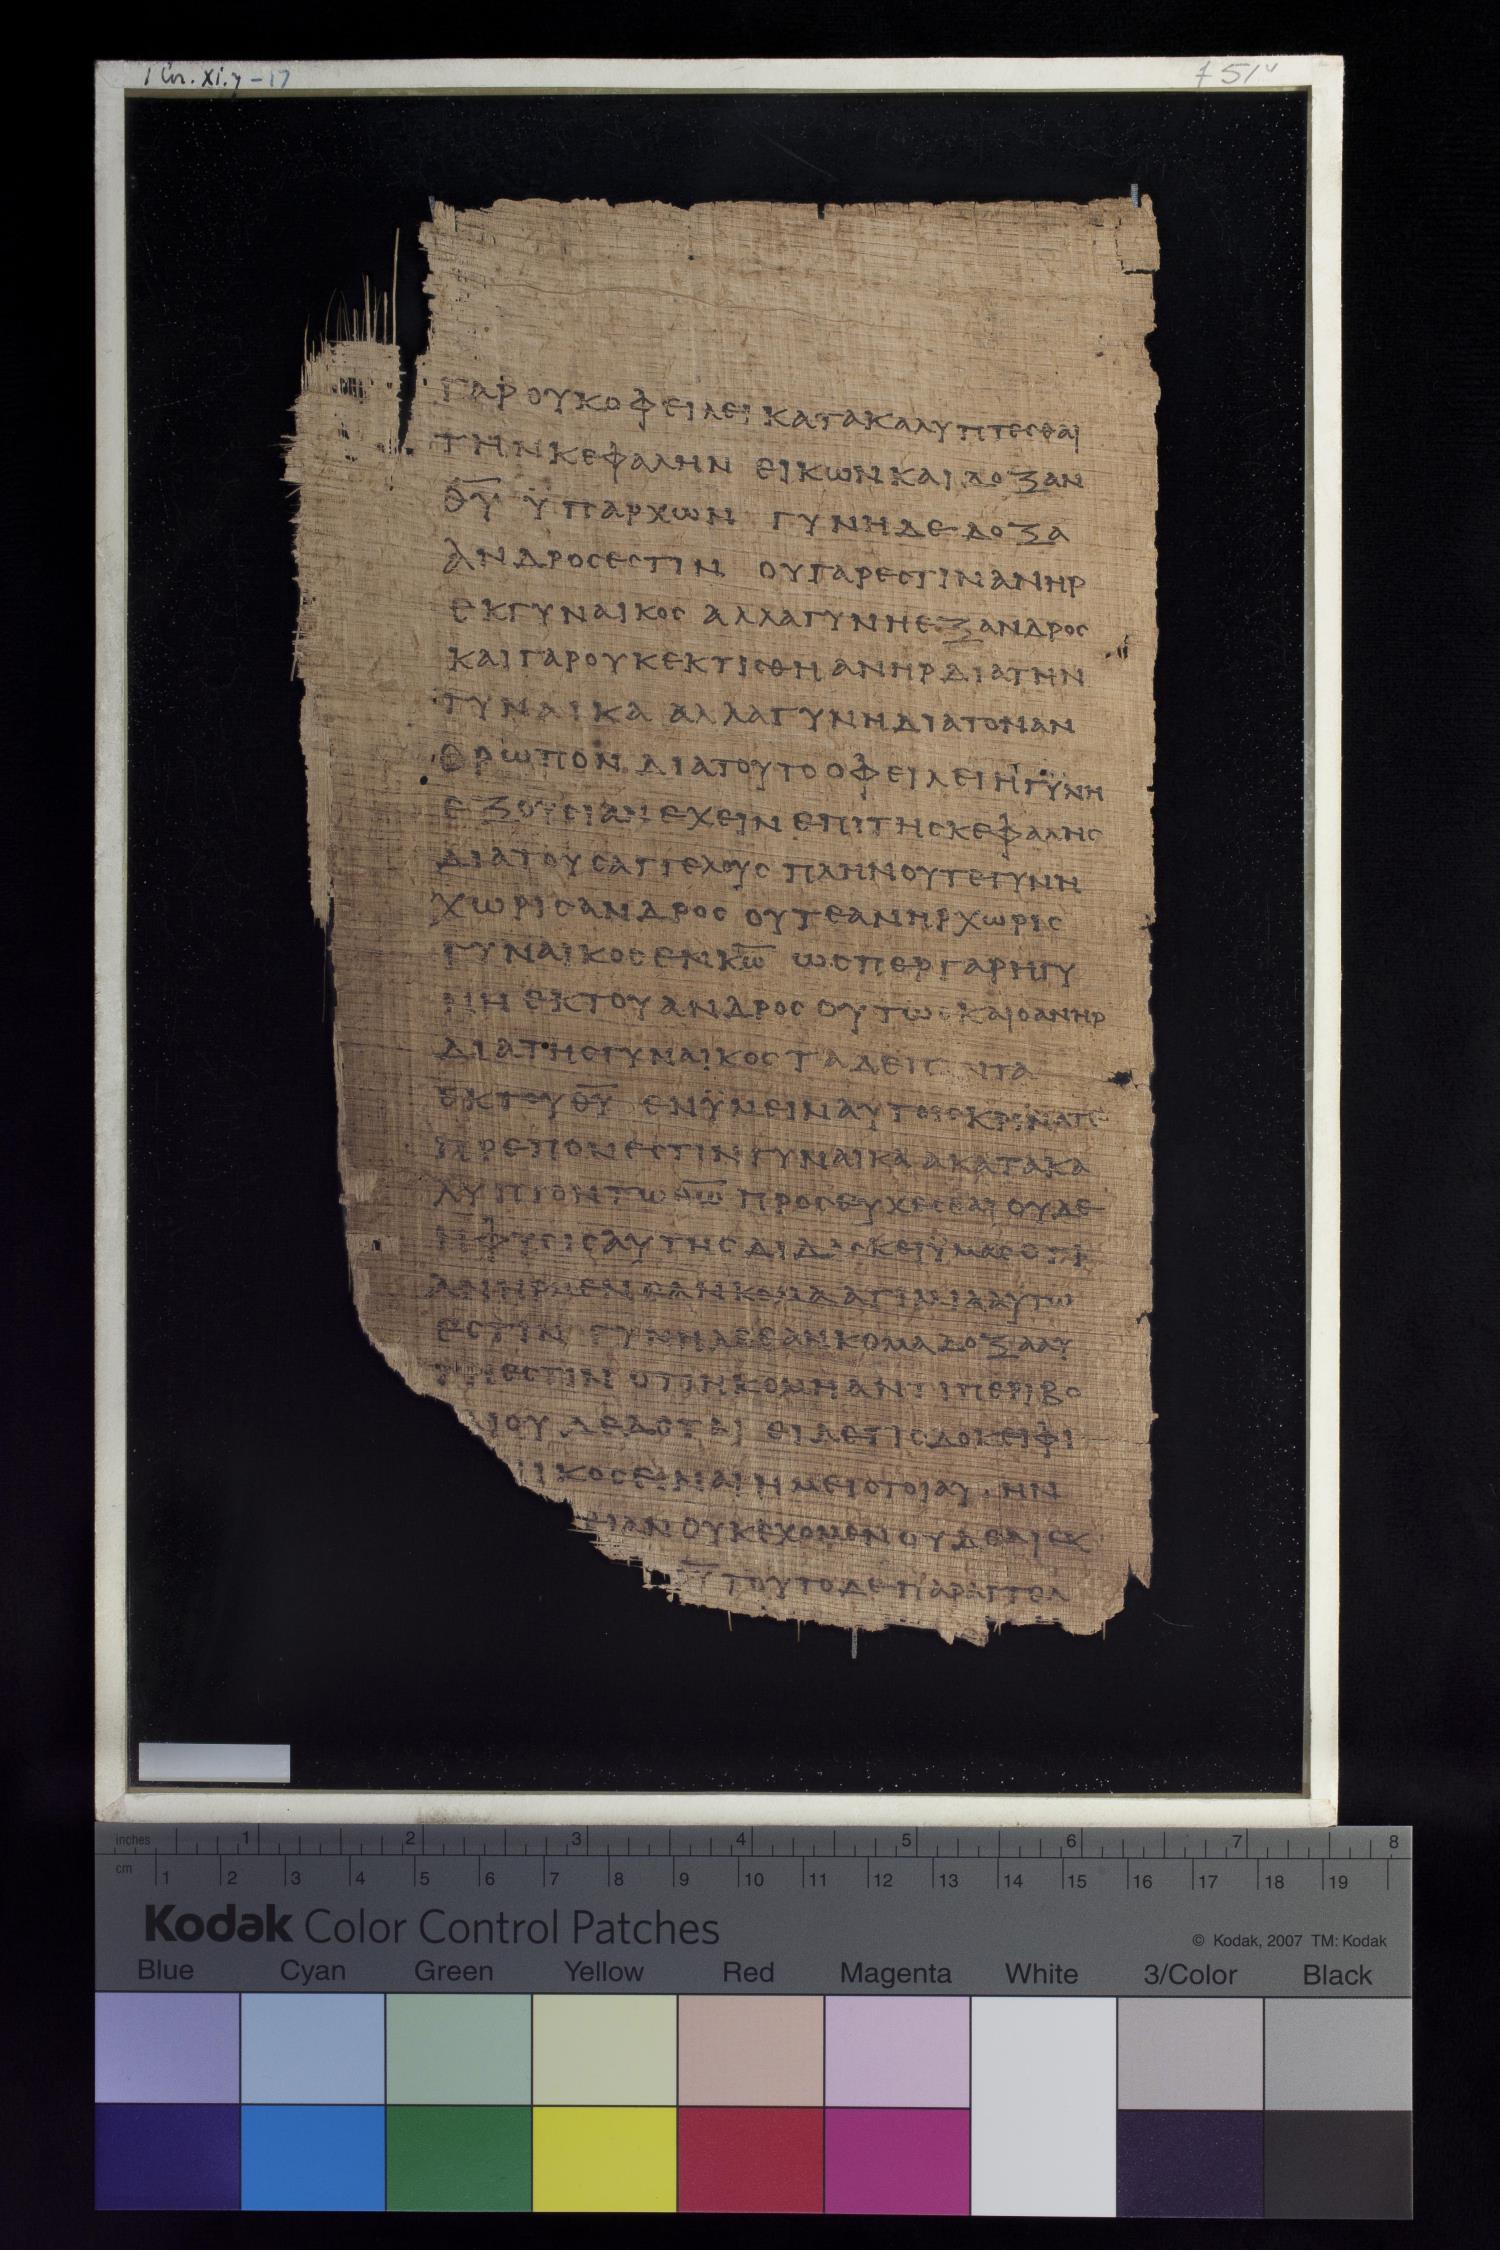 1 Cor. XI. 7-17
f 51ᵛ
ΓΑΡ ΟΥΚ ΟΦΕΙΛΕΙ ΚΑΤΑΚΑΛΥΠΤΕСΘΑΙ
ΤΗΝ ΚΕΦΑΛΗΝ ΕΙΚΩΝ ΚΑΙ ΔΟΞΑΝ
Θ̅Υ̅ ΫΠΑΡΧΩΝ ΓΥΝΗ ΔΕ ΔΟΞΑ
ΑΝΔΡΟС ΕСΤΙΝ ΟΥ ΓΑΡ ΕСΤΙΝ ΑΝΗΡ
ΕΚ ΓΥΝΑΙΚΟС ΑΛΛΑ ΓΥΝΗ ΕΞ ΑΝΔΡΟС
ΚΑΙ ΓΑΡ ΟΥΚ ΕΚΤΙСΘΗ ΑΝΗΡ ΔΙΑ ΤΗΝ
ΓΥΝΑΙΚΑ ΑΛΛΑ ΓΥΝΗ ΔΙΑ ΤΟΝ ΑΝ
ΘΡΩΠΟΝ ΔΙΑ ΤΟΥΤΟ ΟΦΕΙΛΕΙ Η ΓΥΝΗ
ΕΞΟΥСΙΑΝ ΕΧΕΙΝ ΕΠΙ ΤΗС ΚΕΦΑΛΗС
ΔΙΑ ΤΟΥС ΑΓΓΕΛΟΥС ΠΛΗΝ ΟΥΤΕ ΓΥΝΗ
ΧΩΡΙС ΑΝΔΡΟС ΟΥΤΕ ΑΝΗΡ ΧΩΡΙС
ΓΥΝΑΙΚΟС ΕΝ Κ̅Ω̅ ΩСΠΕΡ ΓΑΡ Η ΓΥ
ΝΗ ΕΚ ΤΟΥ ΑΝΔΡΟС ΟΥΤΩС ΚΑΙ Ο ΑΝΗΡ
ΔΙΑ ΤΗС ΓΥΝΑΙΚΟС ΤΑ ΔΕ ΝΤΑ
ΕΚ ΤΟΥ Θ̅Υ̅ ΕΝ ΫΜΕΙΝ ΑΥΤΟΙС ΚΡΙΝΑΤΕ
ΠΡΕΠΟΝ ΕСΤΙΝ ΓΥΝΑΙΚΑ ΑΚΑΤΑΚΑ
ΛΥΠΤΟΝ ΤΩ Θ̅Ω̅ ΠΡΟСΕΥΧΕСΘΑΙ ΟΥΔΕ
Η ΦΥСΙС ΑΥΤΗ ΔΙΔΑСΚΕΙ ΫΜΑС ΟΤΙ
ΑΝΗΡ ΜΕΝ ΕΑΝ ΚΟΜΑ ΑΤΙΜΙΑ ΑΥΤΩ
ΕСΤΙΝ ΓΥΝΗ ΔΕ ΕΑΝ ΚΟΜΑ ΔΟΞΑ ΑΥ
ΤΗ ΕСΤΙΝ ΟΤΙ Η ΚΟΜΗ ΑΝΤΙ ΠΕΡΙΒΟ
ΛΙΟΥ ΔΕΔΟΤΑΙ ΕΙ ΔΕ ΤΙС ΔΟΚΕΙ ΦΙ
ΙΚΟС ΕΙΝΑΙ ΗΜΕΙС ΤΟΙΑΥΤΗΝ
ΟΥΚ ΕΧΟΜΕΝ ΟΥΔΕ ΑΙ ΕΚ
ΤΟΥΤΟ ΔΕ ΠΑΡΑΓΓΕΛ
inches 1 2 3 4 5 6 7 8
cm 1 2 3 4 5 6 7 8 9 10 11 12 13 14 15 16 17 18 19
Kodak Color Control Patches
© Kodak, 2007 TM: Kodak
Blue Cyan Green Yellow Red Magenta White 3/Color Black